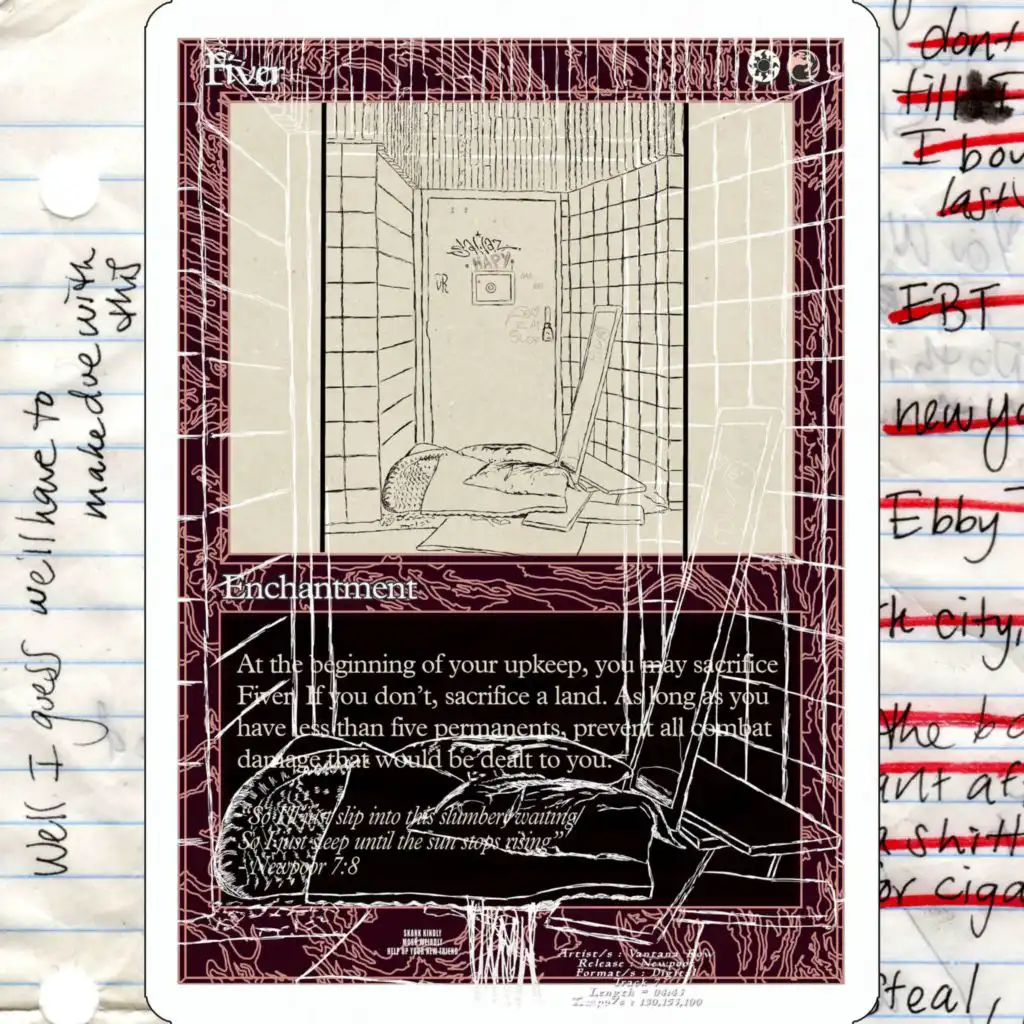 Fiver
HAPY
Enchantment
At the beginning of your upkeep, you may sacrifice
Fiver. If you don't, sacrifice a land. As long as you
have less than five permanents, prevent all combat
damage that would be dealt to you.
"So I'll just slip into this slumber, waiting
So I just sleep until the sun stops rising"
- Newpoor 7:8
SKANK KINDLY
MOSH WEIRDLY
HELP UP YOUR NEW FRIEND
Artist/s : Vantana Row
Release : Newpoor
Format/s : Digital
Track 7
Length = 04:43
Well I guess we'll have to
makedue with
this
don't
till
I bou
last
EBT
new yo
Ebby
k city,
the bo
ant af
shitt
or ciga
steal,